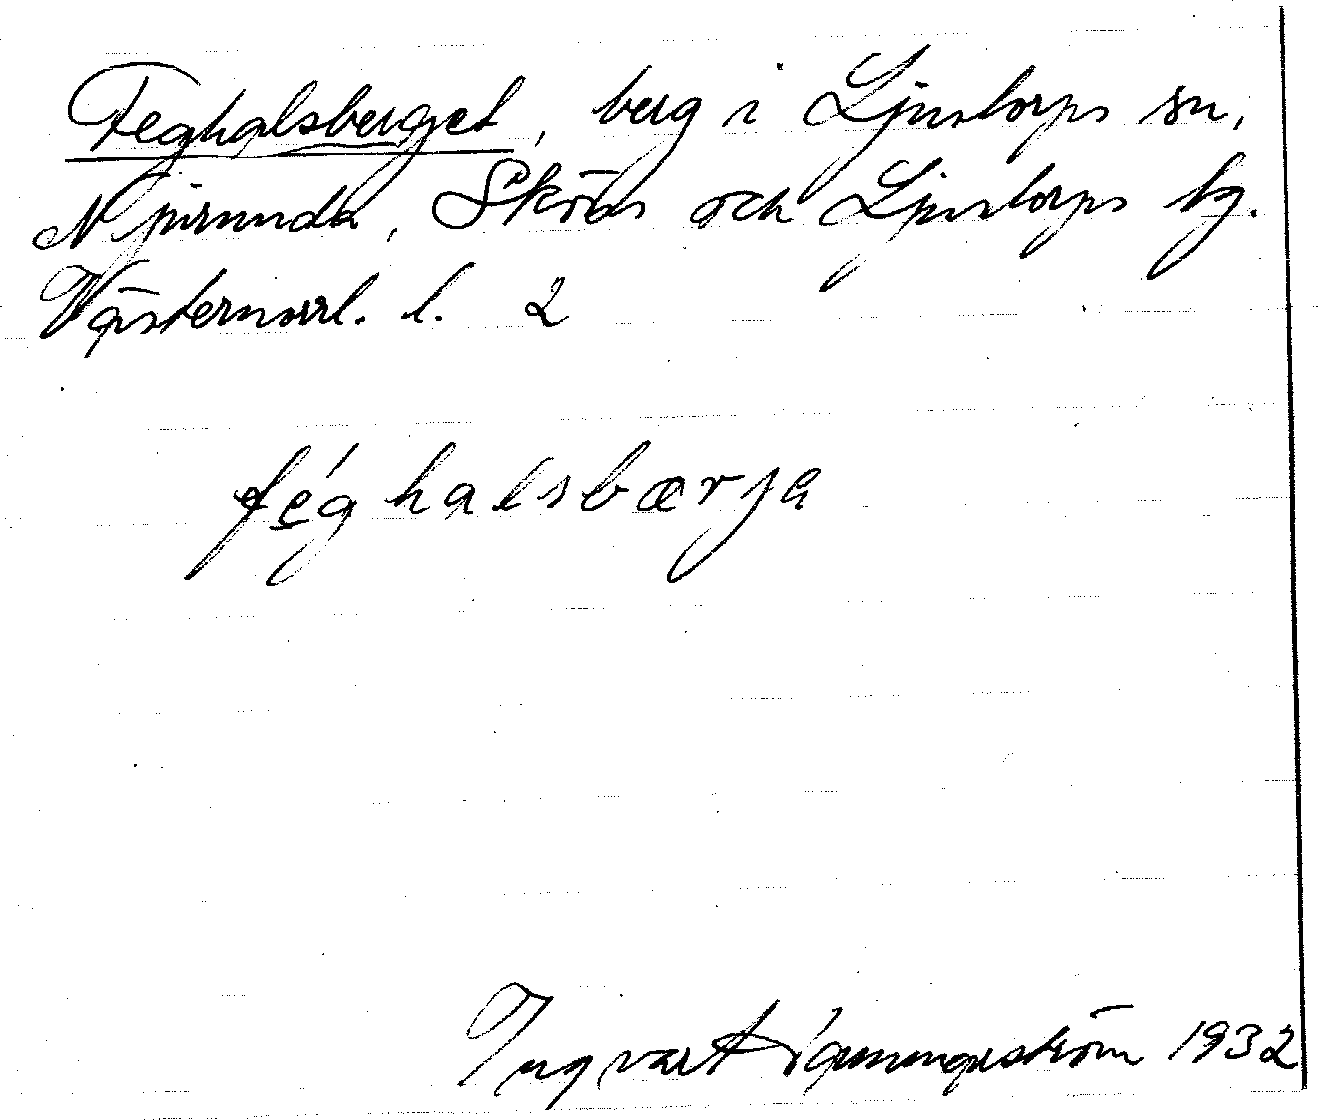 Feghalsberget, berg i Ljustorps sn,
Njurunda, Sköns och Ljustorps tg.
Västernorrl. l. 2
féghalsbærja
Ingvar 1932